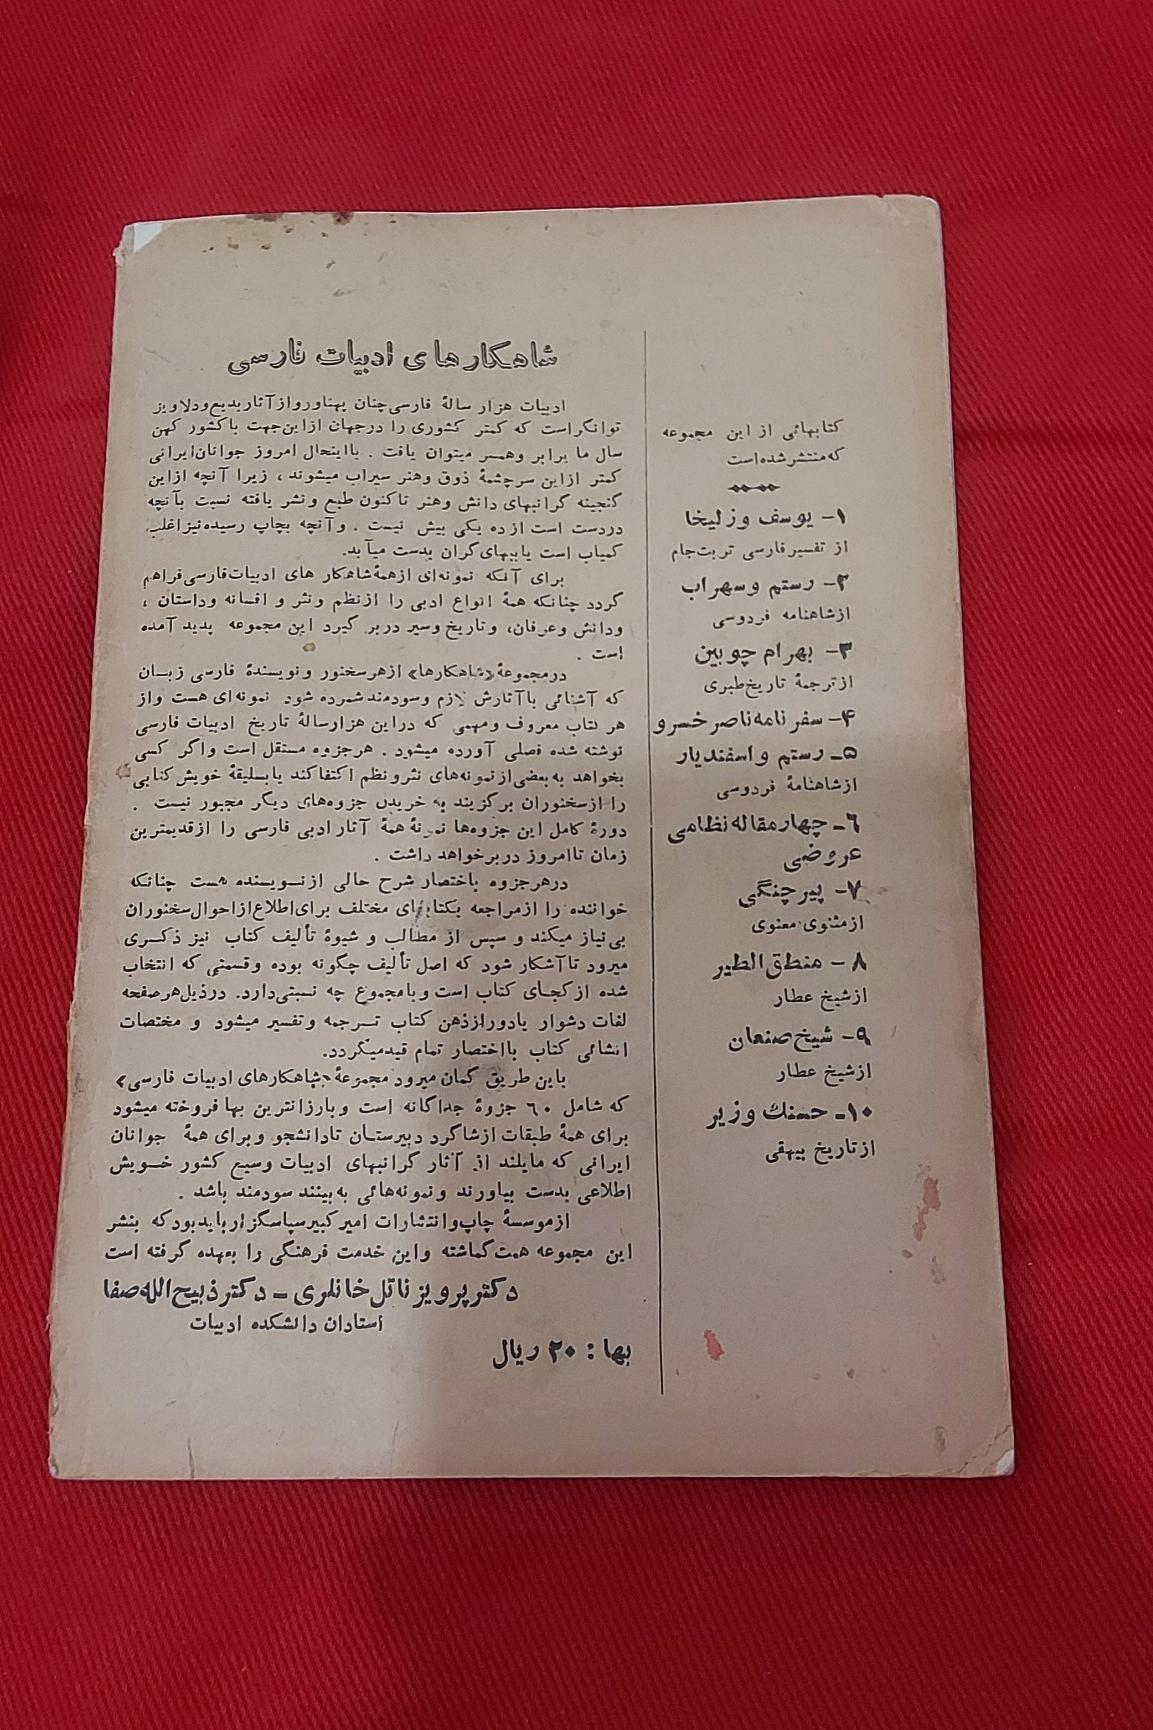 شاهکارهای ادبیات فارسی
ادبیات هزار سالهٔ فارسی چنان پهناور و از آثار بدیع و دلاویز
توانگر است که کمتر کشوری را درجهان ازاین جهت با کشور کهن
سال ما برابر وهمسر میتوان یافت . بااینحال امروز جوانان ایرانی
کمتر ازاین سرچشمهٔ ذوق وهنر سیراب میشوند ، زیرا آنچه ازاین
گنجینه گرانبهای دانش وهنر تاکنون طبع و نشر یافته نسبت بآنچه
دردست است ازده یکی بیش نیست . و آنچه بچاپ رسیده نیز اغلب
کمیاب است یاببهای گران بدست میآید.
برای آنکه نمونه‌ای ازهمهٔ شاهکار های ادبیات فارسی فراهم
گردد چنانکه همهٔ انواع ادبی را ازنظم ونثر و افسانه وداستان ،
ودانش وعرفان، وتاریخ وسیر دربر گیرد این مجموعه پدید آمده
است .
درمجموعهٔ «شاهکارها» ازهرسخنور ونویسندهٔ فارسی زبان
که آشنائی باآثارش لازم وسودمند شمرده شود نمونه‌ای هست واز
هر کتاب معروف ومهمی که دراین هزارسالهٔ تاریخ ادبیات فارسی
نوشته شده فصلی آورده میشود . هرجزوه مستقل است واگر کسی
بخواهد به بعضی از نمونه‌های نثرونظم اکتفا کند یابسلیقهٔ خویش کتابی
را ازسخنوران برگزیند به خریدن جزوه‌های دیگر مجبور نیست .
دورهٔ کامل این جزوه‌ها نمونهٔ همهٔ آثار ادبی فارسی را ازقدیمترین
زمان تاامروز دربرخواهد داشت .
درهرجزوه باختصار شرح حالی ازنویسنده هست چنانکه
خواننده را ازمراجعه بکتابهای مختلف برای اطلاع ازاحوال سخنوران
بی نیاز میکند و سپس از مطالب و شیوهٔ تألیف کتاب نیز ذکری
میرود تاآشکار شود که اصل تألیف چگونه بوده وقسمتی که انتخاب
شده از کجای کتاب است وبامجموع چه نسبتی دارد. درذیل هر صفحه
لغات دشوار یادورازذهن کتاب ترجمه وتفسیر میشود و مختصات
انشائی کتاب بااختصار تمام قیدمیگردد.
باین طریق گمان میرود مجموعهٔ «شاهکارهای ادبیات فارسی»
که شامل ۶۰ جزوهٔ جداگانه است وبارزانترین بها فروخته میشود
برای همهٔ طبقات ازشاگرد دبیرستان تادانشجو وبرای همهٔ جوانان
ایرانی که مایلند از آثار گرانبهای ادبیات وسیع کشور خویش
اطلاعی بدست بیاورند ونمونه‌هائی به‌بینند سودمند باشد .
ازموسسهٔ چاپ وانتشارات امیرکبیر سپاسگزار باید بود که بنشر
این مجموعه همت گماشته واین خدمت فرهنگی را بعهده گرفته است
دکتر پرویز ناتل خانلری - دکتر ذبیح الله صفا
استادان دانشکده ادبیات
بها : ۲۰ ریال
کتابهائی از این مجموعه
که منتشر شده است
۱- یوسف وزلیخا
از تفسیر فارسی تربت جام
۲- رستم وسهراب
ازشاهنامه فردوسی
۳- بهرام چوبین
ازترجمهٔ تاریخ طبری
۴- سفرنامه ناصر خسرو
۵- رستم واسفندیار
ازشاهنامهٔ فردوسی
۶- چهارمقاله نظامی
عروضی
۷- پیرچنگی
ازمثنوی معنوی
۸- منطق الطیر
ازشیخ عطار
۹- شیخ صنعان
ازشیخ عطار
۱۰- حسنك وزیر
ازتاریخ بیهقی